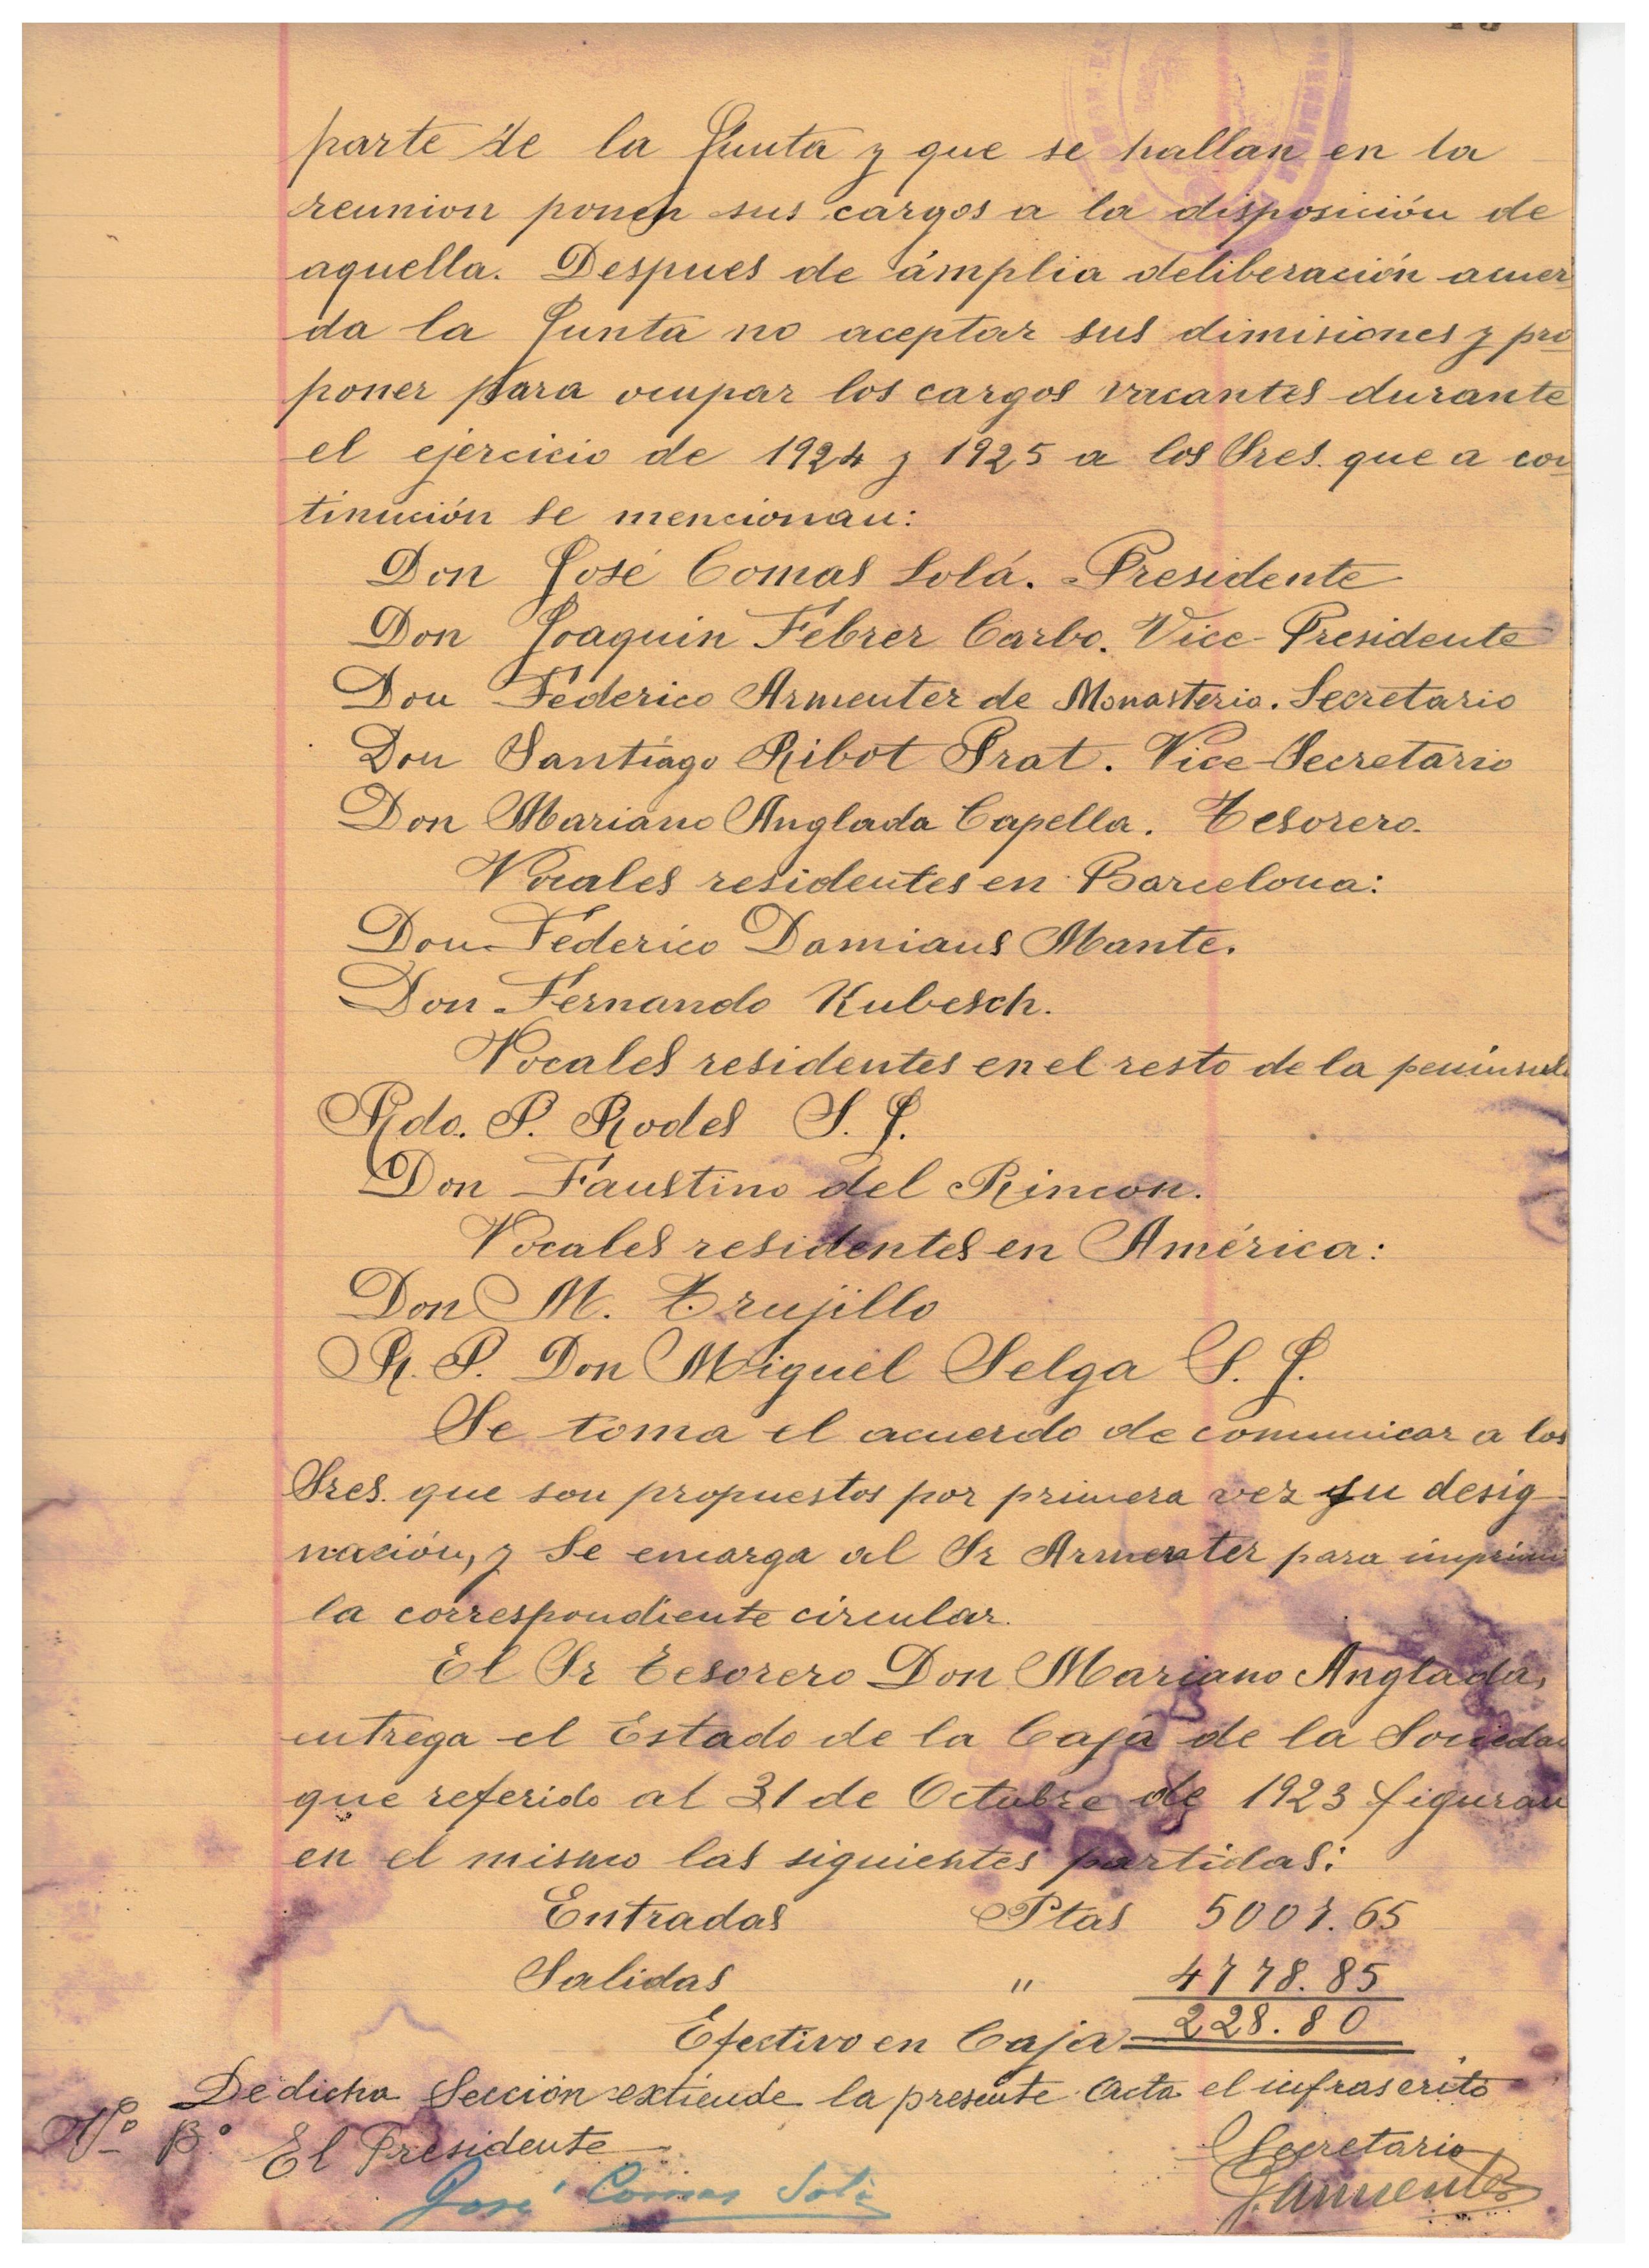 parte de la Junta y que se hallan en la
reunion ponen sus cargos a la disposición de
aquella. Despues de ámplia deliberación acuer
da la Junta no aceptar sus dimisiones y pro
poner para ocupar los cargos vacantes durante
el ejercicio de 1924 y 1925 a los Sres. que a con
tinución se mencionan:
Don José Comas Solá. Presidente
Don Joaquin Febrer Carbo. Vice-Presidente
Don Federico Armenter de Monasterio. Secretario
Don Santiago Ribot Prat. Vice-Secretario
Don Mariano Anglada Capella. Tesorero.
Vocales residentes en Barcelona:
Don Federico Damians Mante.
Don Fernando Kubesch.
Vocales residentes en el resto de la penínsul
Rdo. P. Rodes S. J.
Don Faustino del Rincon.
Vocales residentes en América:
Don M. Trujillo
R. P. Don Miguel Selga S. J.
Se toma el acuerdo de comunicar a los
Sres. que son propuestos por primera vez su desig-
nación, y se encarga al Sr Armenter para imprimi
la correspondiente circular.
El Sr Tesorero Don Mariano Anglada,
entrega el Estado de la Caja de la Sociedad
que referido al 31 de Octubre de 1923 figuran
en el mismo las siguientes partidas:
Entradas Ptas 5007.65
Salidas " 4778.85
Efectivo en Caja 228.80
De dicha Sección extiende la presente Acta el infrascrito
Vº Bº El Presidente Secretario
José Comas Solà F. Armenter